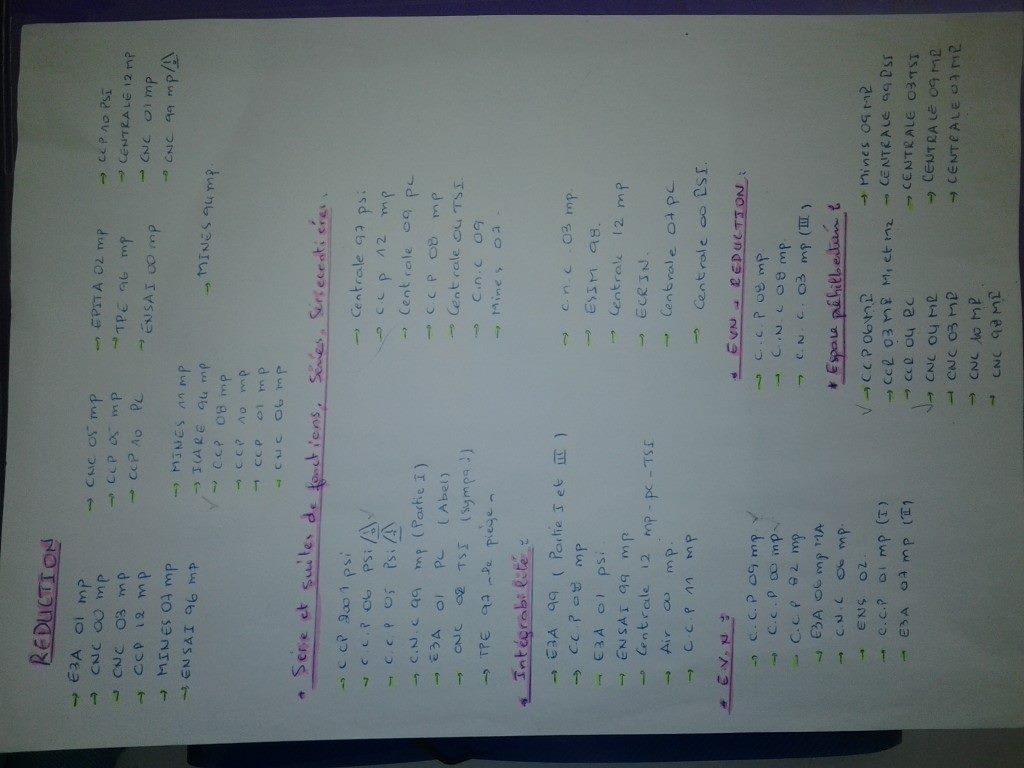 REDUCTION
→ E3A 01 mp
→ CNC 00 mp
→ CNC 03 mp
→ CCP 12 mp
→ MINES 07 mp
→ ENSAI 96 mp
→ CNC 05 mp
→ CCP 05 mp
→ CCP 10 PC
→ EPITA 02 mp
→ TPE 96 mp
→ ENSAI 00 mp
→ CCP 10 PSI
→ CENTRALE 12 MP
→ CNC 01 mp
→ CNC 99 mp /!\
→ MINES 11 mp
→ ICARE 94 mp
✓ → CCP 08 mp
→ CCP 10 mp
→ CCP 01 mp
→ CNC 06 mp
→ MINES 94 mp.
* Série et suites de fonctions, Séries, Séries entières.
→ CCP 2001 psi
→ C.C.P 06 psi /!\ ✓
→ C.C.P 05 Psi /!\
→ C.N.C 99 mp (Partie I)
→ E3A 01 PC (Abel)
→ CNC 02 TSI (sympa!)
→ TPE 97 - le piège -
→ Centrale 97 psi
→ C.C.P 12 mp
→ Centrale 09 PC
→ C.C.P 08 mp
→ Centrale 04 TSI
→ C.n.C 09
→ Mines 07.
* Intégrabilité :
→ E3A 99 (Partie I et III)
→ C.C.P 08 mp
→ E3A 01 psi
→ ENSAI 99 mp
→ Centrale 12 mp - pc - TSI
→ Air 00 mp.
→ C.C.P 11 mp
→ C.n.C. 03 mp.
→ ESIM 98.
→ Centrale 12 mp
→ ECRIN.
→ Centrale 07 PC
→ Centrale 00 PSI.
* E.V.N :
→ C.C.P 09 mp ✓
→ C.C.P 00 mp ✓
→ C.C.P 82 mp
→ E3A 06 mp MA
→ C.N.C 06 mp.
→ ENS 02.
→ C.C.P 01 mp (I)
→ E3A 07 mp (II)
* EVN → REDUCTION :
→ C.C.P 08 mp.
→ C.N.C 08 mp.
→ C.N.C. 03 mp (III)
* Espace préhilbertien :
✓ → CCP 06 MP
→ CCP 03 MP M1 et M2
→ CCP 04 PC
✓ → CNC 04 MP
→ CNC 03 MP
→ CNC 10 MP
→ CNC 98 MP
→ Mines 09 MP
→ CENTRALE 99 PSI
→ CENTRALE 03 TSI
→ CENTRALE 09 MP
→ CENTRALE 07 MP